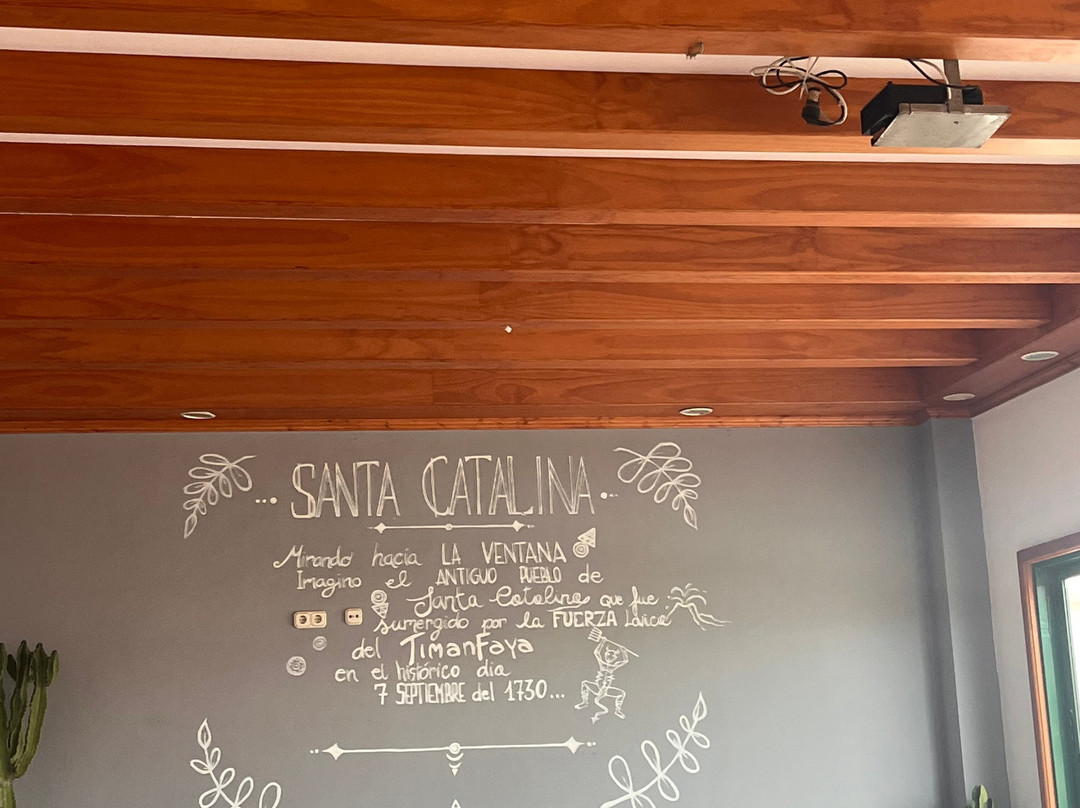 SANTA CATALINA
Mirando hacia LA VENTANA
Imagino el ANTIGUO PUEBLO de
Santa Catalina que fue
sumergido por la FUERZA Lávica
del Timanfaya
en el histórico dia
7 SEPTIEMBRE del 1730...